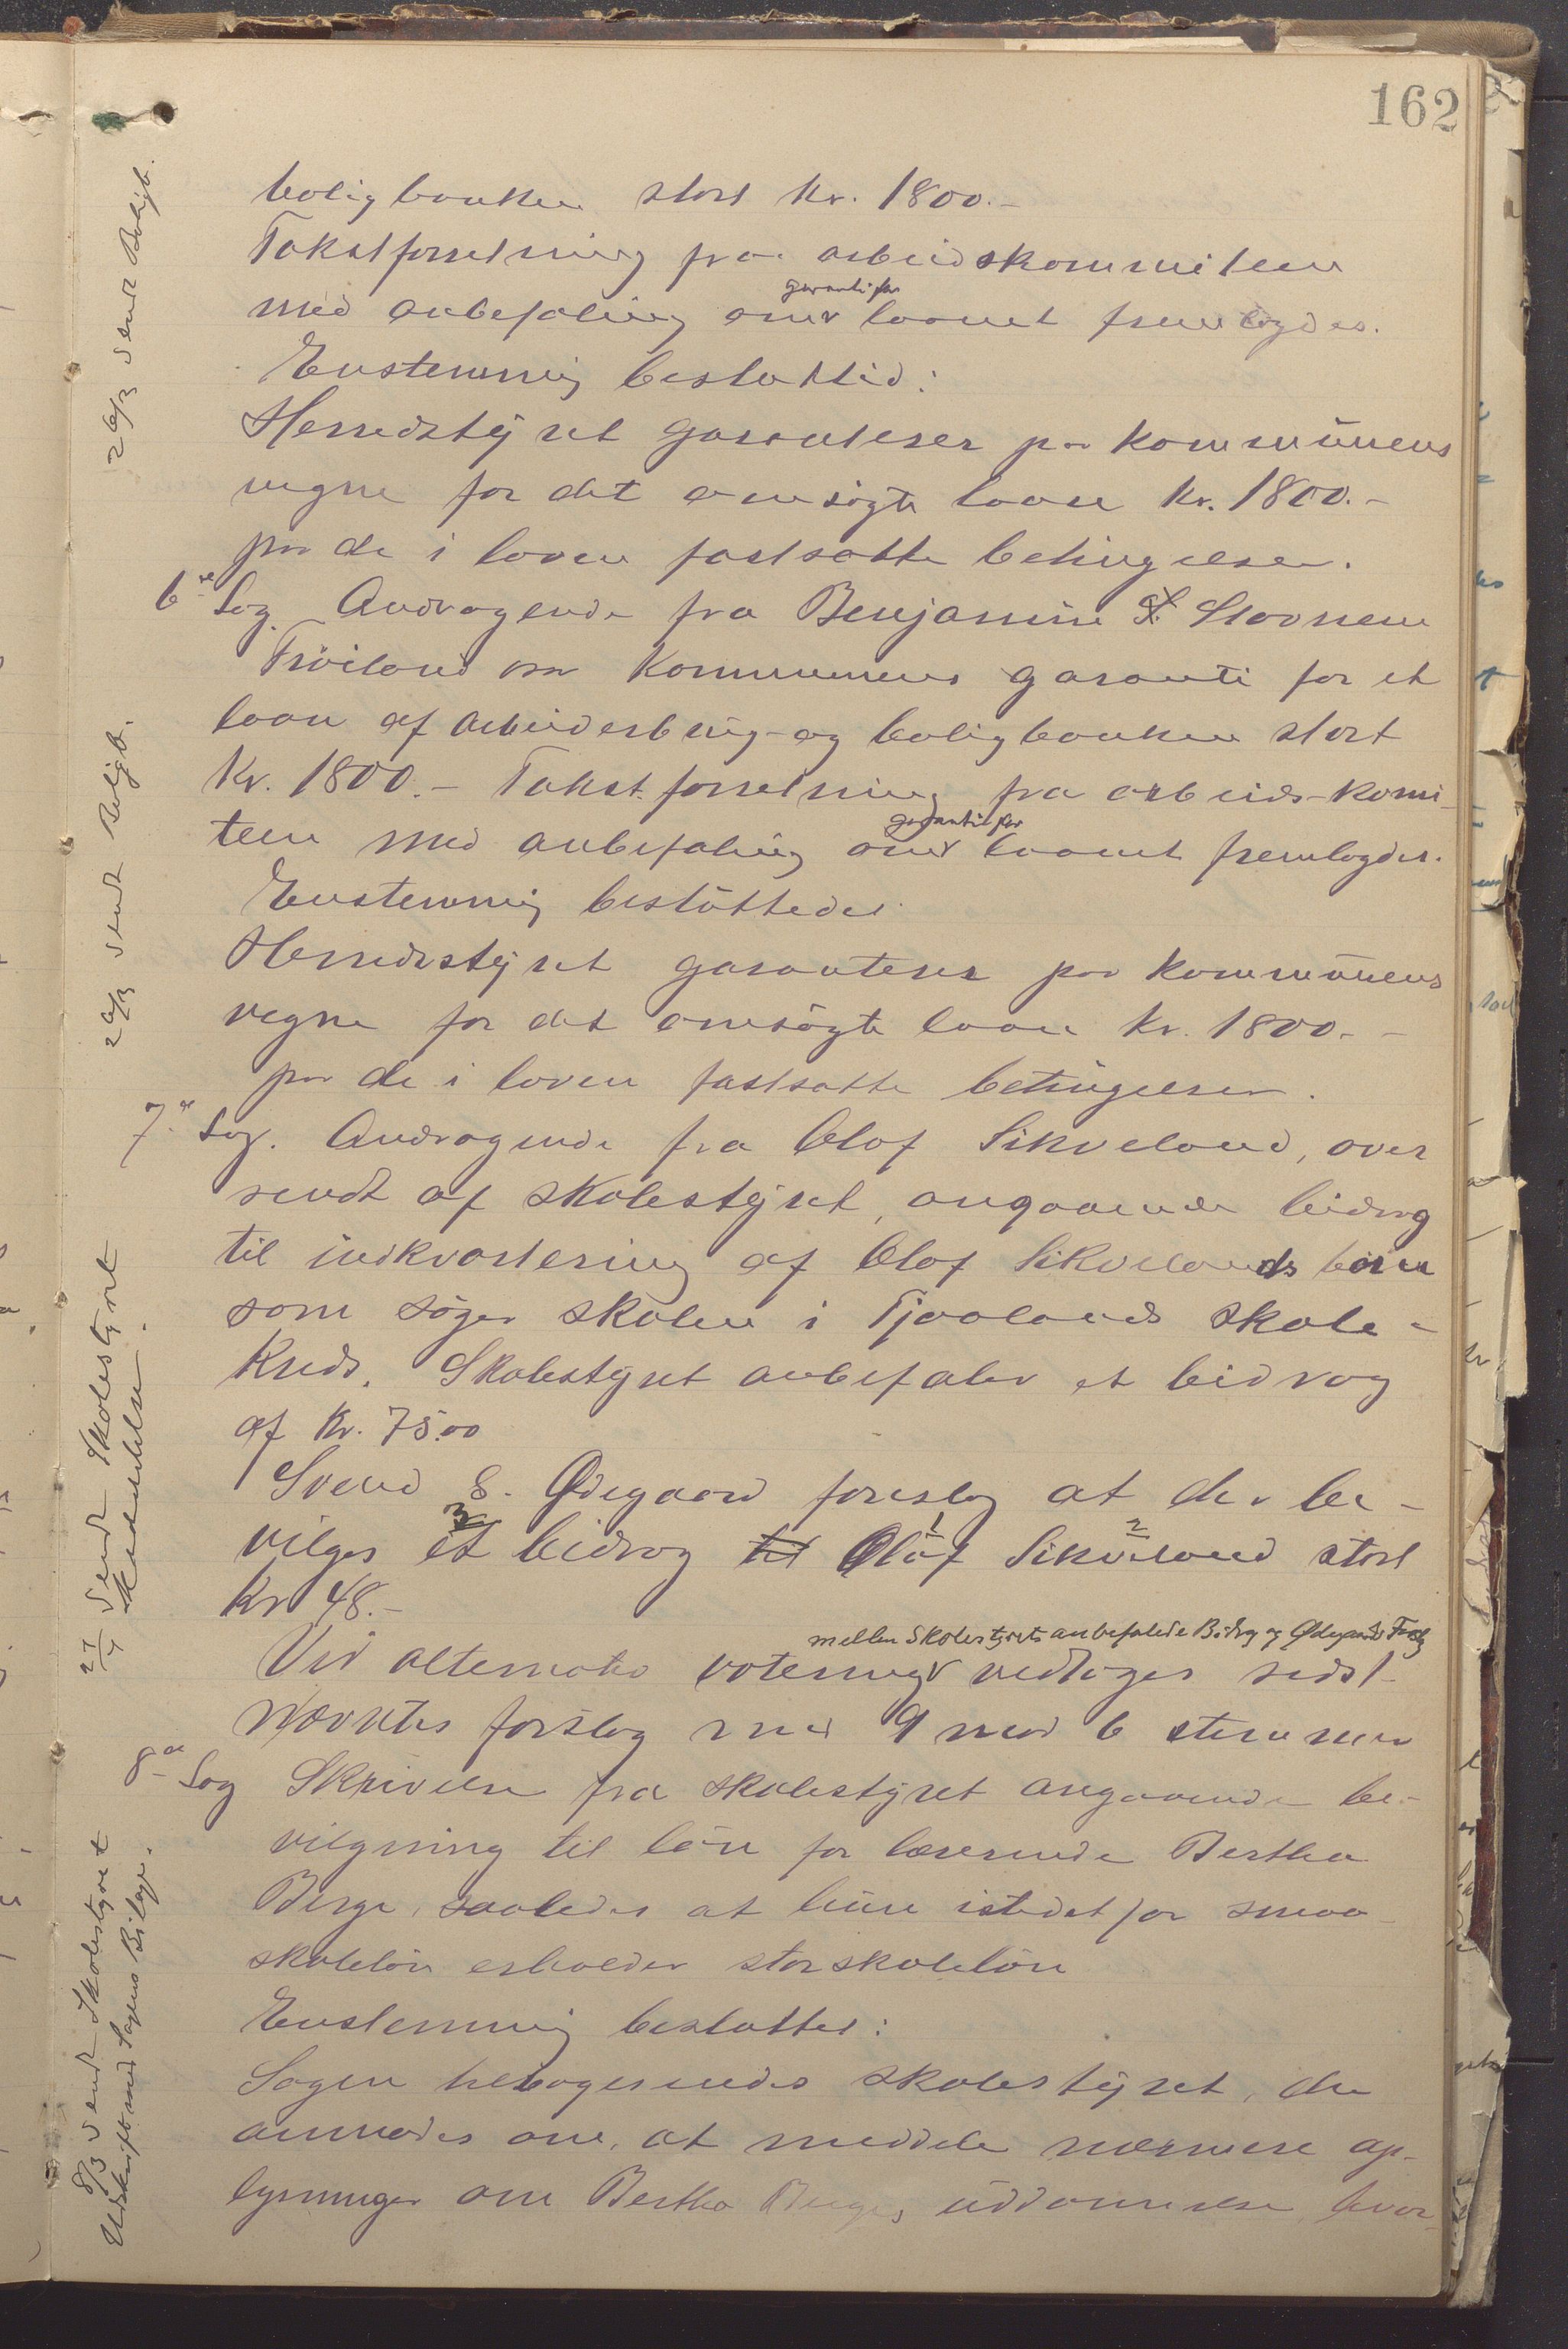 162
boligbanken stort kr. 1800.-
Takstforretning fra arbeidskommiteen
garanti for
med anbefaling om laanet fremlagdes.
Enstemmig beslutted:
Herredstyret garanterer paa kommunens
vegne for det omsøgte laan kr. 1800.-
paa de i loven fastsatte betingelser.
6te Sag. Andragende fra Benjamin S. Stavnem
Frøiland om Kommunens garanti for et
laan af arbeiderbrug- og boligbanken stort
Kr. 1800.- Takstforretning fra arbeids-komi-
garanti for
teen med anbefaling om laanet fremlagdes.
Enstemmig besluttedes
Herredsstyret garanterer paa kommunens
vegne for det omsøgte laan kr. 1800.-
paa de i loven fastsatte betingelser.
7de Sag. Andragende fra Olaf Sikveland, over
sendt af skolestyret, angaaende bidrag
til indkvartering af Olaf Sikvelands børn
som søger skolen i Tjaalands skole-
kreds. Skolestyret anbefaler et bidrag
af Kr. 75.00
Svend S. Ødegaard foreslog at der be-
3 1 2
vilges et bidrag til Olaf Sikveland stort
Kr 48.-
mellem Skolestyrets anbefalede Bidrag og Ødegaards Forslag
Ved alternativ votering vedtoges sidst-
nævntes forslag med 9 mod 6 stemmer
8de Sag Skrivelse fra skolestyret angaaende be-
vilgning til løn for lærerinde Bertha
Berge, saaledes at hun istedet for smaa-
skoleløn erholder storskoleløn
Enstemmig besluttet:
Sagen tilbagesendes skolestyret, der
anmodes om, at meddele nærmere op-
lysninger om Bertha Berges uddannelse, hvor-
26/3 sendt Boligb.
26/3 sendt Boligb.
27/4 Sendt Skolestyret
Meddelelse.
8/3 sendt Skolestyret
Udskrift med Sagens Bilage.